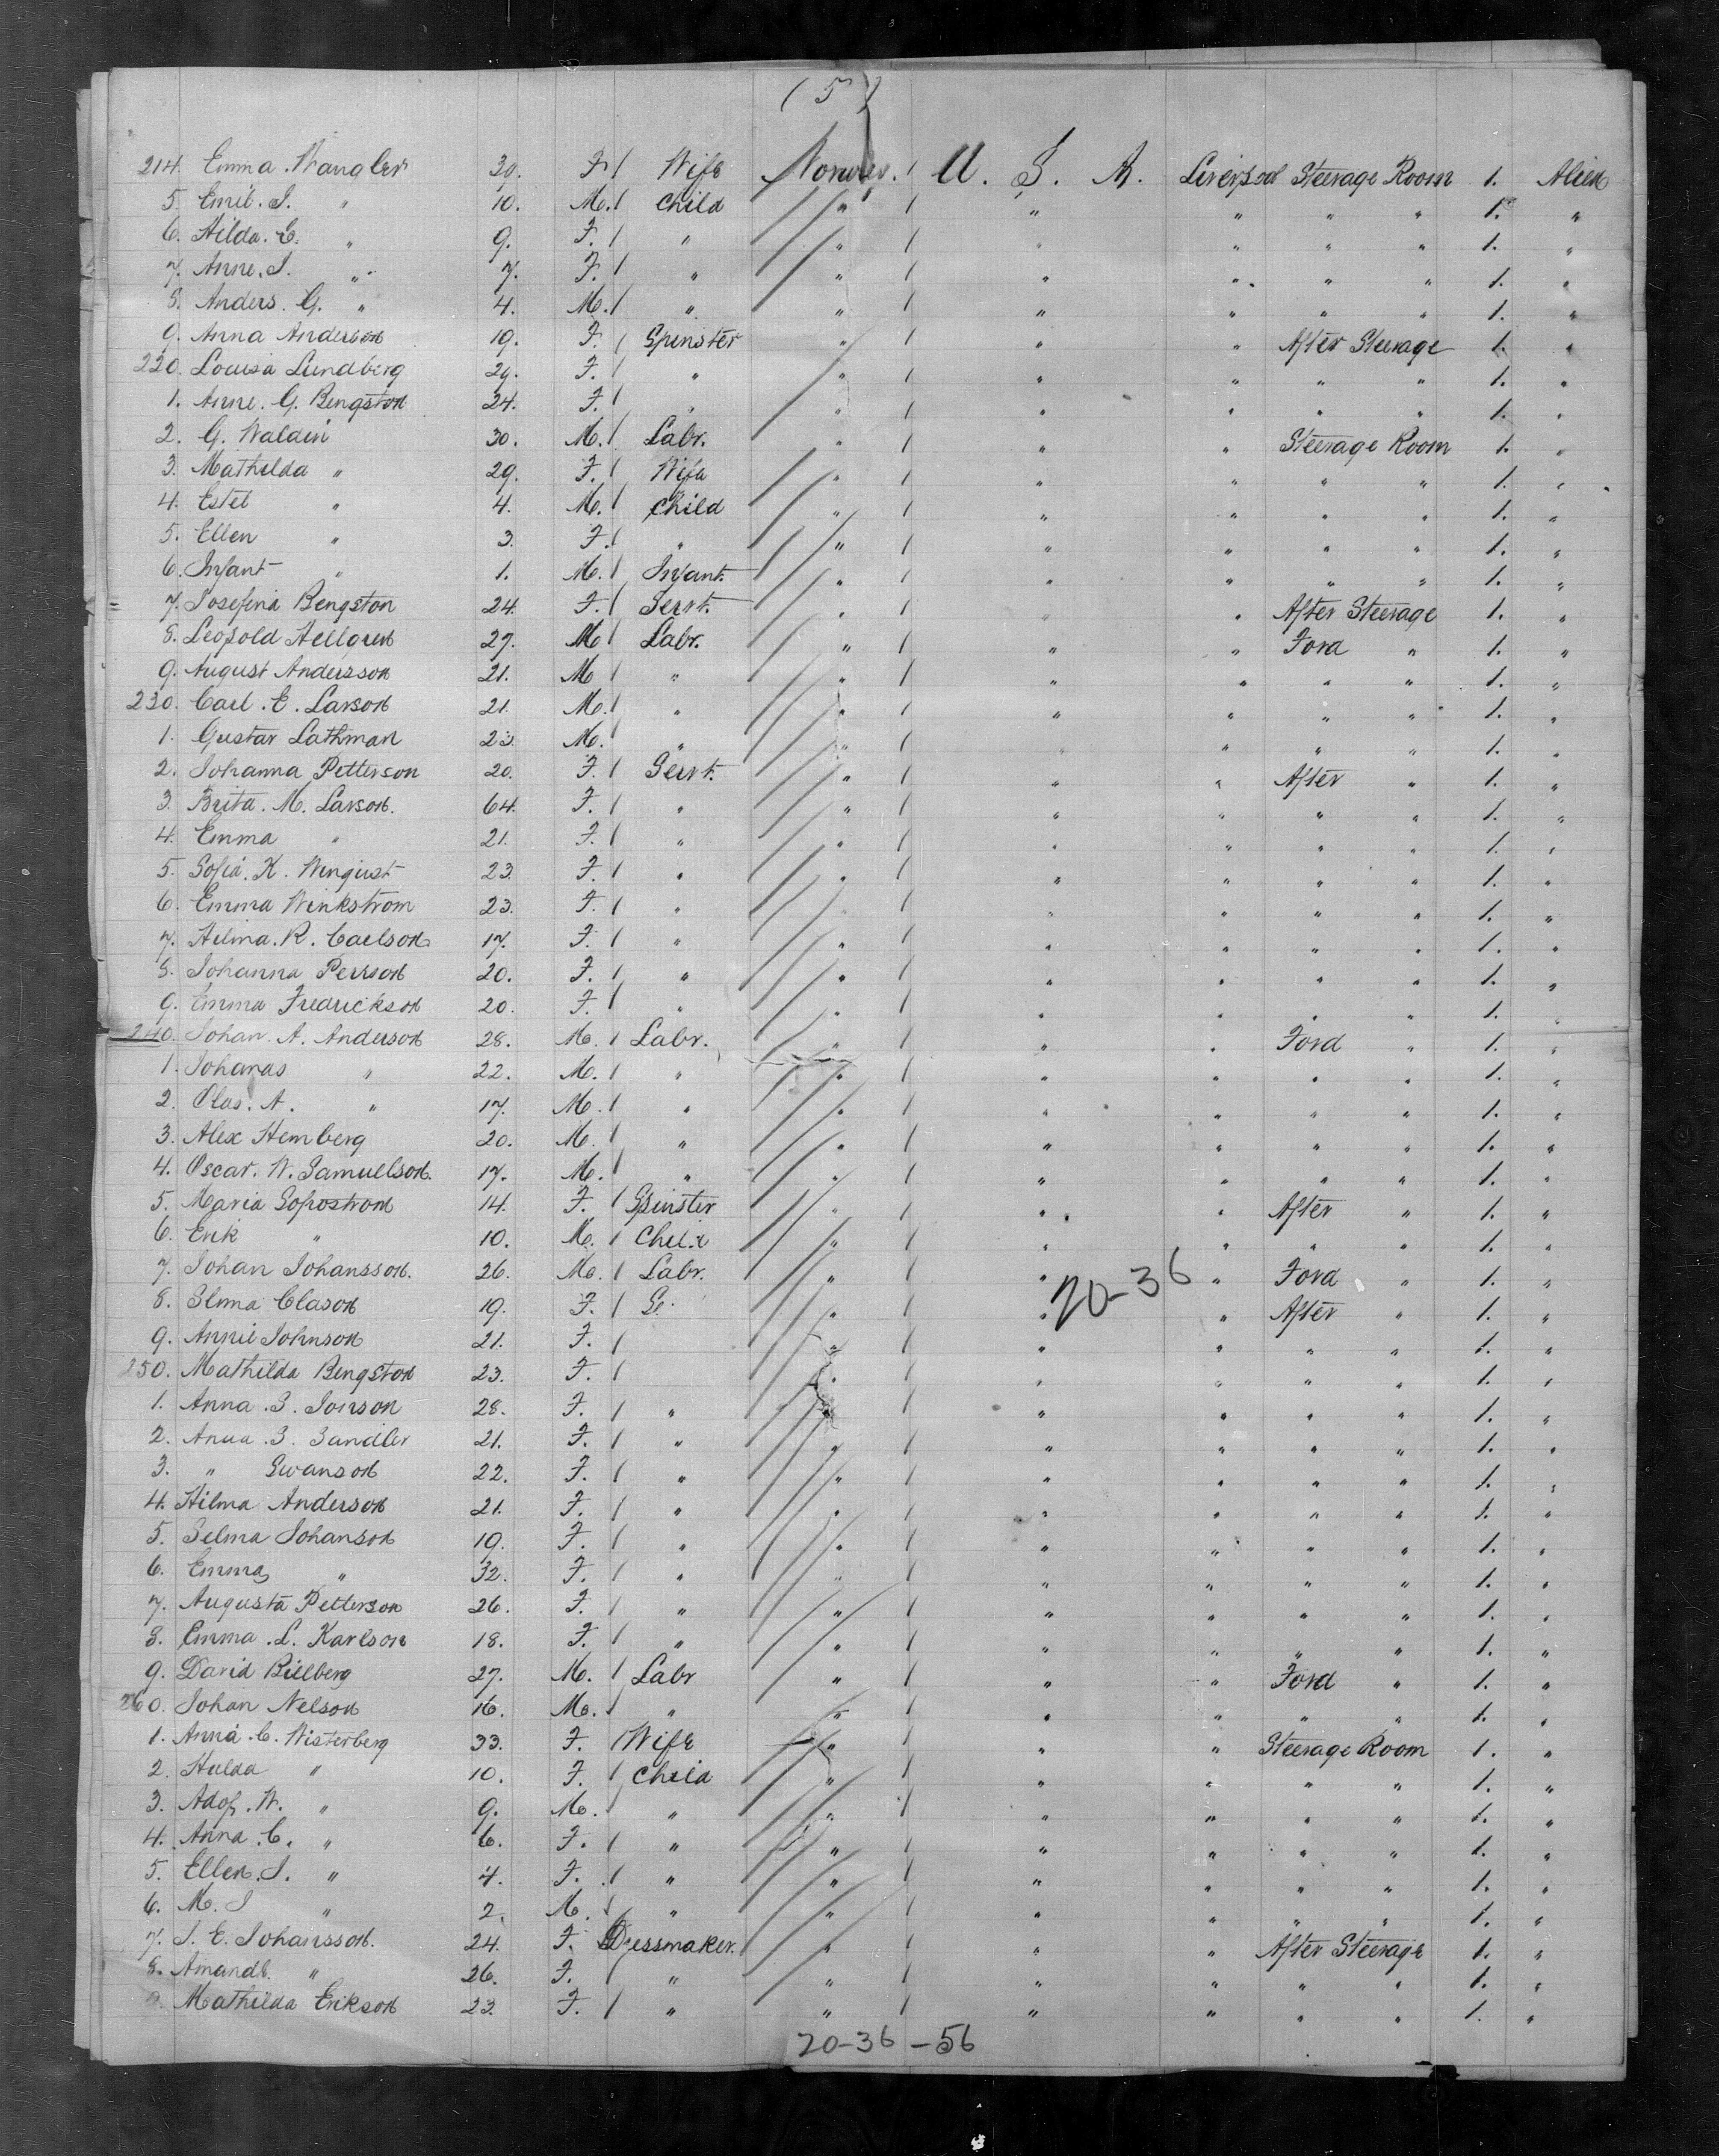 ( 5 )
214. Emma Wangler 30. F / Wife Norway. / U. S. A. Liverpool Steerage Room 1. Alien
5. Emil. J. " 10. M. / Child " / " " " " 1. "
6. Hilda. C. " 9. F. / " " / " " " " 1. "
7. Anne. J. " 7. F. / " " / " " " " 1. "
8. Anders. G. " 4. M. / " " / " " " " 1. "
9. Anna Anderson 19. F. / Spinster " / " " After Steerage 1. "
220. Louisa Lundberg 29. F. / " " / " " " " 1. "
1. Anne. G. Bengston 24. F. / " " / " " " " 1. "
2. G. Waldin 30. M. / Labr. " / " " Steerage Room 1. "
3. Mathilda " 29. F. / Wife " / " " " " 1. "
4. Estel " 4. M. / Child " / " " " " 1. "
5. Ellen " 3. F. / " " / " " " " 1. "
6. Infant " 1. M. / Infant. " / " " " " 1. "
7. Josefina Bengston 24. F. / Servt. " / " " After Steerage 1. "
8. Leopold Hellgren 27. M / Labr. " / " " Ford " 1. "
9. August Andersson 21. M / " " / " " " " 1. "
230. Carl. E. Larson 21. M. / " " / " " " " 1. "
1. Gustav Lathman 23. M. " " / " " " " 1. "
2. Johanna Petterson 20. F. / Servt. " / " " After " 1. "
3. Brita. M. Larson. 64. F. / " " / " " " " 1. "
4. Emma " 21. F. / " " / " " " " 1. "
5. Sofia. K. Winquist 23. F. / " " / " " " " 1. "
6. Emma Winkstrom 23. F. / " " / " " " " 1. "
7. Hilma. R. Carlson 17. F. / " " / " " " " 1. "
8. Johanna Persson 20. F. / " " / " " " " 1. "
9. Emma Fredrickson 20. F. / " " / " " " " 1. "
240. Johan. A. Anderson 28. M. / Labr. " / " " Ford " 1. "
1. Johanas " 22. M. / " " / " " " " 1. "
2. Olas. A. " 17. M. / " " / " " " " 1. "
3. Alex Hemberg 20. M. " " / " " " " 1. "
4. Oscar. W. Samuelson. 17. M. / " " / " " " " 1. "
5. Maria 14. F. / Spinster " / " " After " 1. "
6. Erik " 10. M. / Child " / " " " " 1. "
7. Johan Johansson. 26. M. / Labr. " / " 20-36 " Ford " 1. "
8. Elma Clason 19. F. / Se. " / " " After " 1. "
9. Annie Johnson 21. F. / " / " " " " 1. "
250. Mathilda Bengston 23. F. / " / " " " " 1. "
1. Anna. S. Jonson 28. F. / " " / " " " " 1. "
2. Anna. S. Sandler 21. F. / " " / " " " " 1. "
3. " Swanson 22. F. / " " / " " " " 1. "
4. Hilma Anderson 21. F. / " " / " " " " 1. "
5. Selma Johanson 19. F. / " " / " " " " 1. "
6. Emma " 32. F. / " " / " " " " 1. "
7. Augusta Petterson 26. F. / " " / " " " " 1. "
8. Emma. L. Karlson 18. F. / " " / " " " " 1. "
9. David Billberg 27. M. / Labr " / " " Ford " 1. "
260. Johan Nelson 16. M. / " " / " " " " 1. "
1. Anna. C. Wisterberg 33. F. Wife " / " " Steerage Room 1. "
2. Hulda " 10. F. / Child " / " " " " 1. "
3. Adof. W. " 9. M. / " " / " " " " 1. "
4. Anna. C. " 6. F. / " " / " " " " 1. "
5. Ellen. J. " 4. F. / " " / " " " " 1. "
6. M. J " 2. M. / " " / " " " " 1. "
7. J. E. Johansson. 24. F. Dressmaker. " / " " After Steerage 1. "
8. Amanda. " 26. F. / " " / " " " " 1. "
9. Mathilda Erikson 23. F. / " " / " " " " 1. "
20-36-56